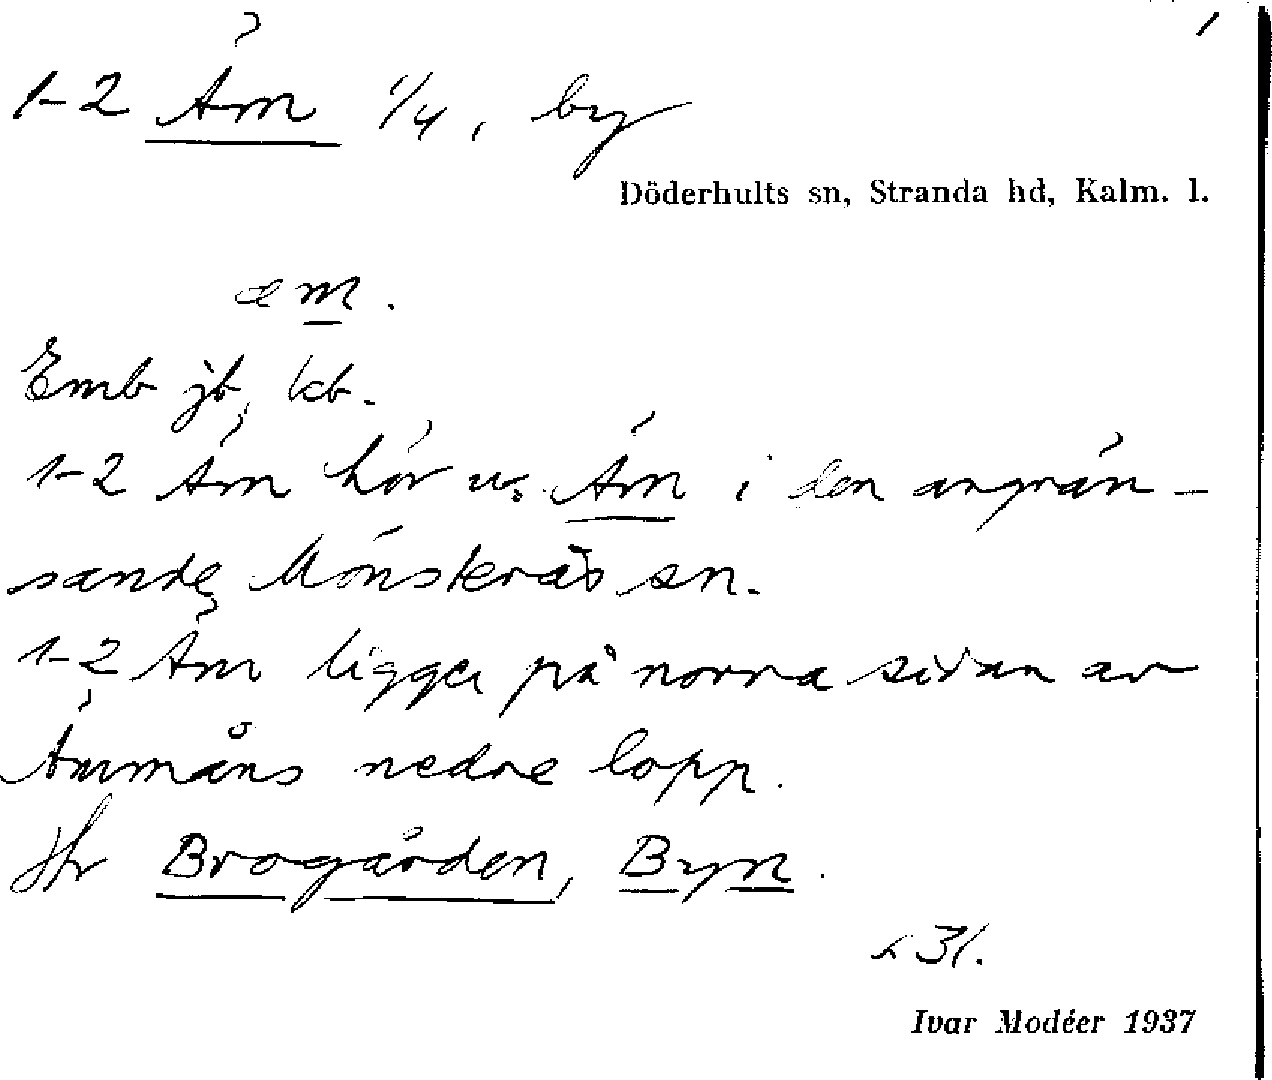 1-2 Äm 1/4, by
Döderhults sn, Stranda hd, Kalm. l.
æm.
Emb jb, kb.
1-2 Äm hör u. Äm i den angrän-
sande Mönsterås sn.
1-2 Äm ligger på norra sidan av
Ämmåns nedre lopp.
Hr Brogården, Byn.
31.
Ivar Modéer 1937